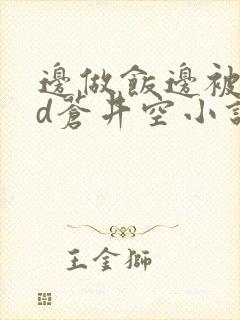 邊做飯邊被
d蒼井空小說
王金獅